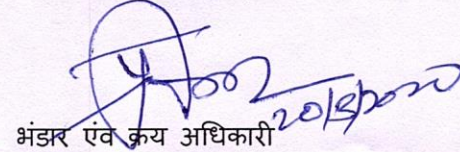 20/5/2020
भंडार एंव क्रय अधिकारी